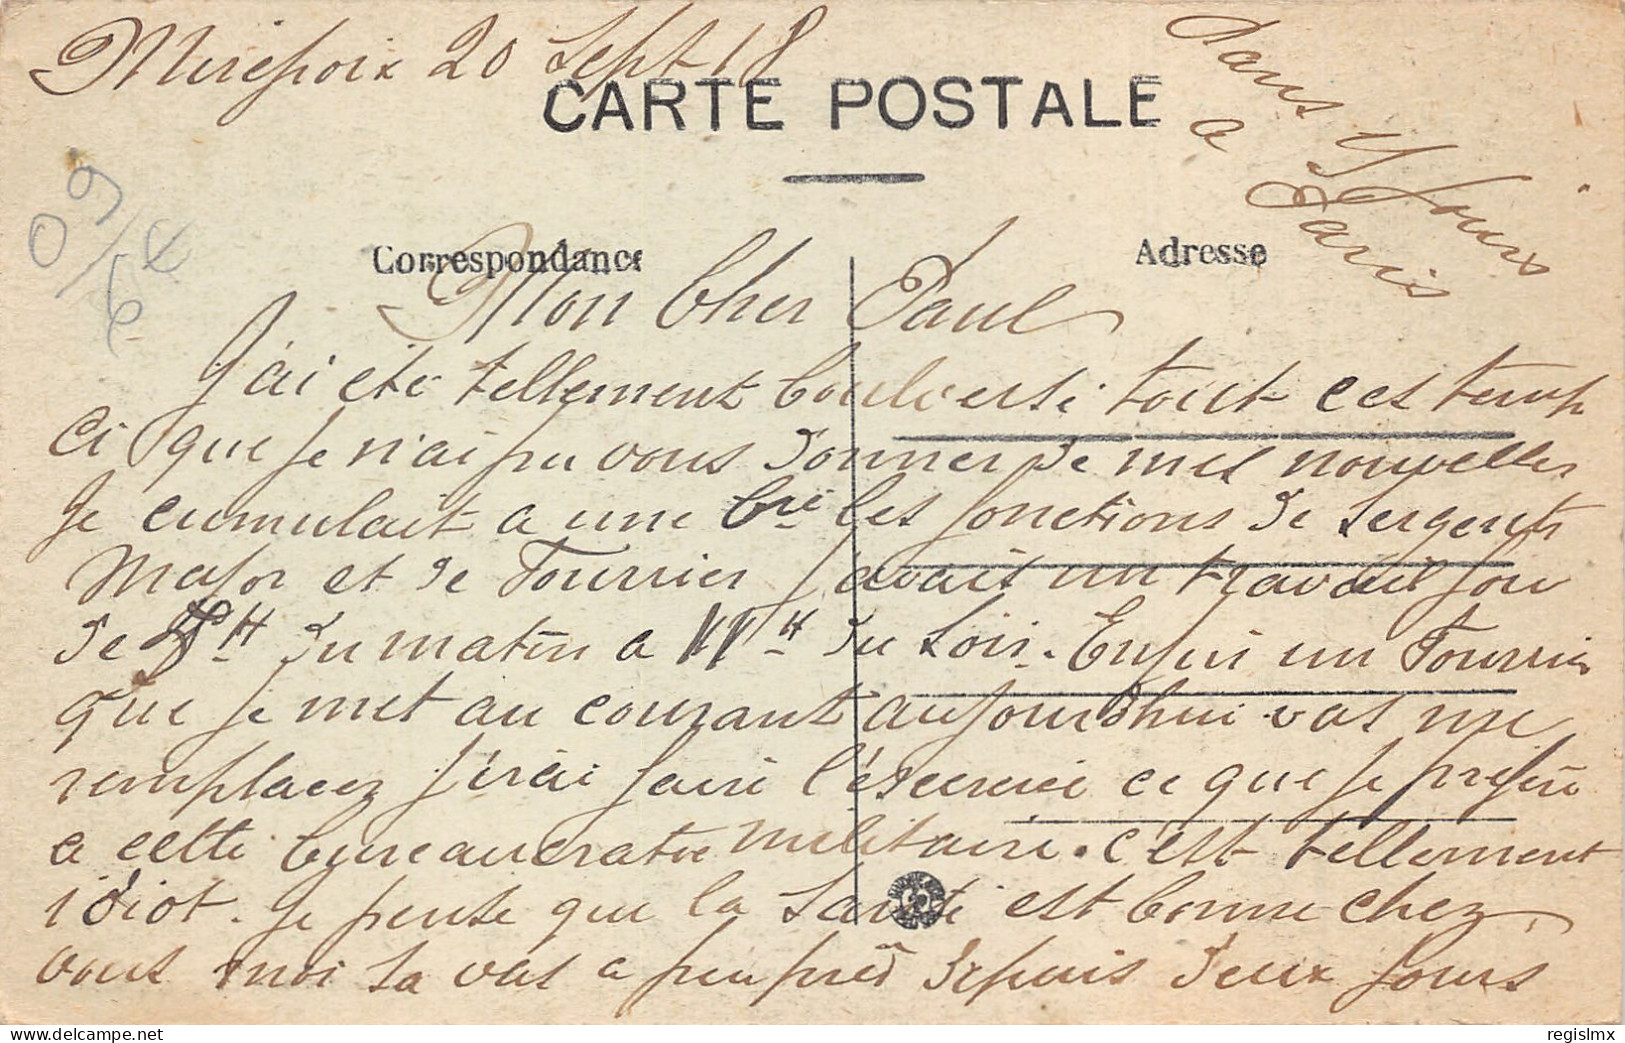 Mirepoix 20 Sept 18
CARTE POSTALE
Dans 4 Jours
a Paris
09
64
Correspondance
Adresse
Mon Cher Paul
J'ai été tellement boulversé tout ces temps
ci que je n'ai pu vous donner de mes nouvelles
Je cumulait a une bie les fonctions de Sergents
Major et de Fourrier j'avais un travail fou
de H du matin a 11H du soir. Enfin un Fourrier
que je met au courant aujourd'hui vas me
remplacer j'irai faire l'éxercice ce que je préfère
a cette bureaucratie militaire. c'est tellement
idiot. Je pense que la santé est bonne chez
vous moi sa vas a peu près depuis deux jours
regislmx